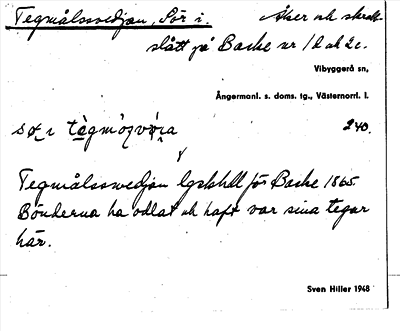 Tegmålssvedjan, Sör i.
Åker och skrak-
slått på Backe nr 1 b och 2c.
Vibyggerå sn,
Ångermanl. s. doms. tg., Västernorrl. l.
240.
Tegmålssvedjan lgskhll för Backe 1865.
Bönderna ha odlat och haft var sina tegar
här.
Sven Hiller 1948